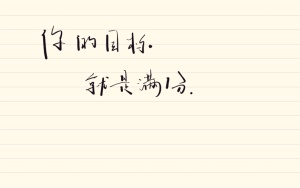 你的目标.
就是满分.